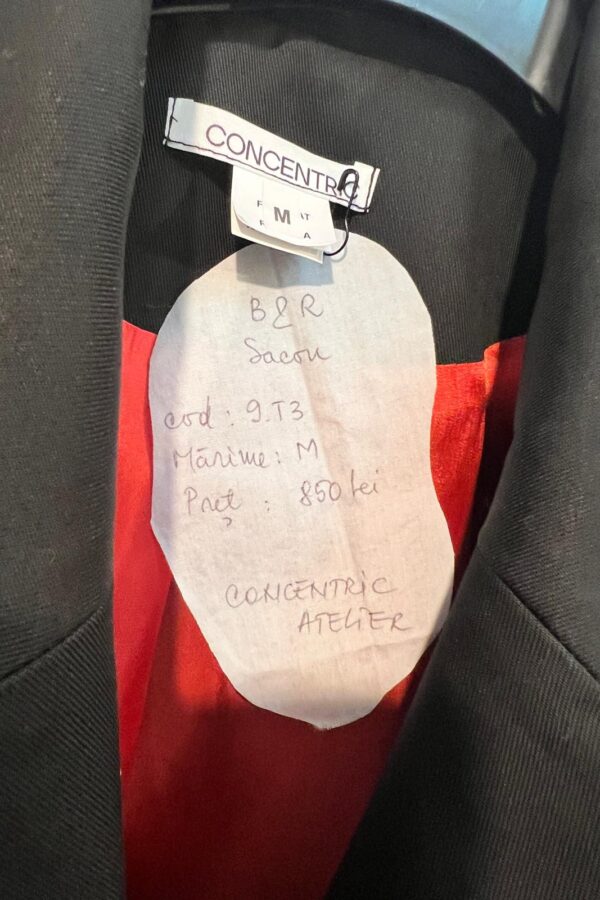 CONCENTRIC
M
B&R
Sacou
cod: 9.T3
Mărime: M
Preț: 850 lei
CONCENTRIC
ATELIER